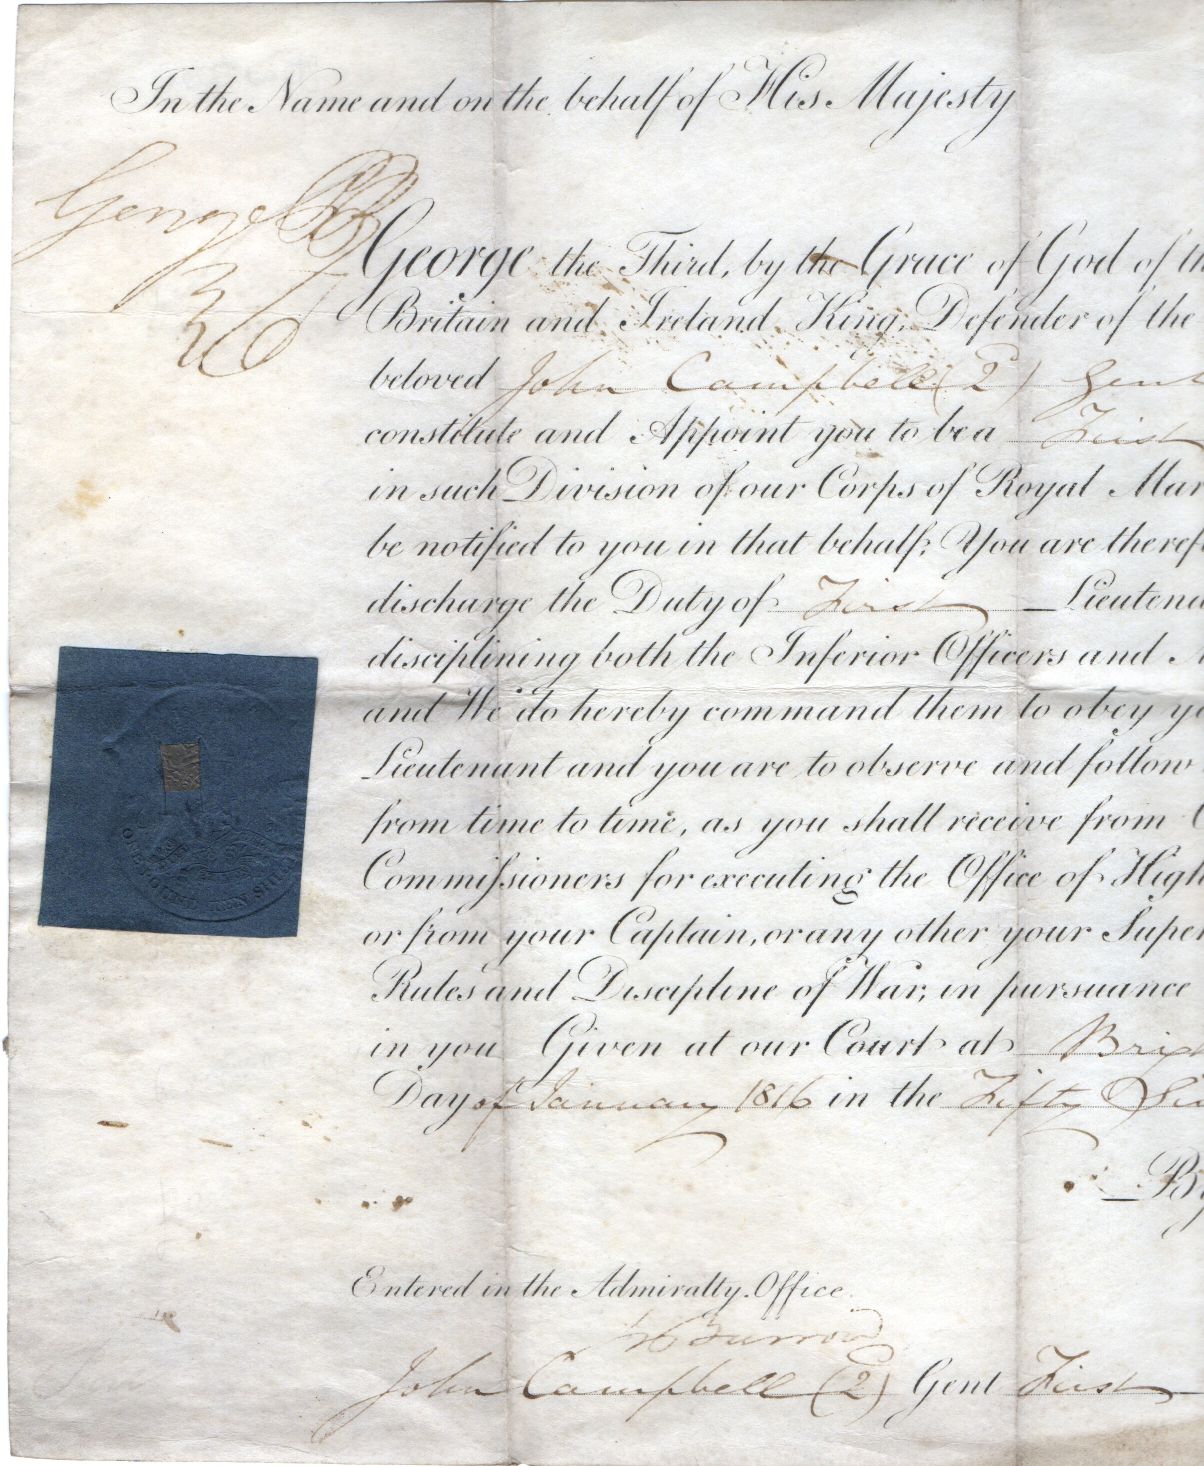 In the Name and on the behalf of His Majesty
George P R
George the Third, by the Grace of God of th
Britain and Ireland King, Defender of the
beloved John Campbell (2d) Gent
constitute and Appoint you to be a First
in such Division of our Corps of Royal Mar
be notified to you in that behalf; You are theref
discharge the Duty of First Lieutena
disciplining both the Inferior Officers and
and We do hereby command them to obey yo
Lieutenant and you are to observe and follow
from time to time, as you shall receive from
Commissioners for executing the Office of High
or from your Captain, or any other your Super
Rules and Discipline of War, in pursuance
in you Given at our Court at Brig
Day of January 1816 in the Fifty Six
By
Entered in the Admiralty Office.
Barrow
John Campbell (2d) Gent First
ONE POUND TEN SHI